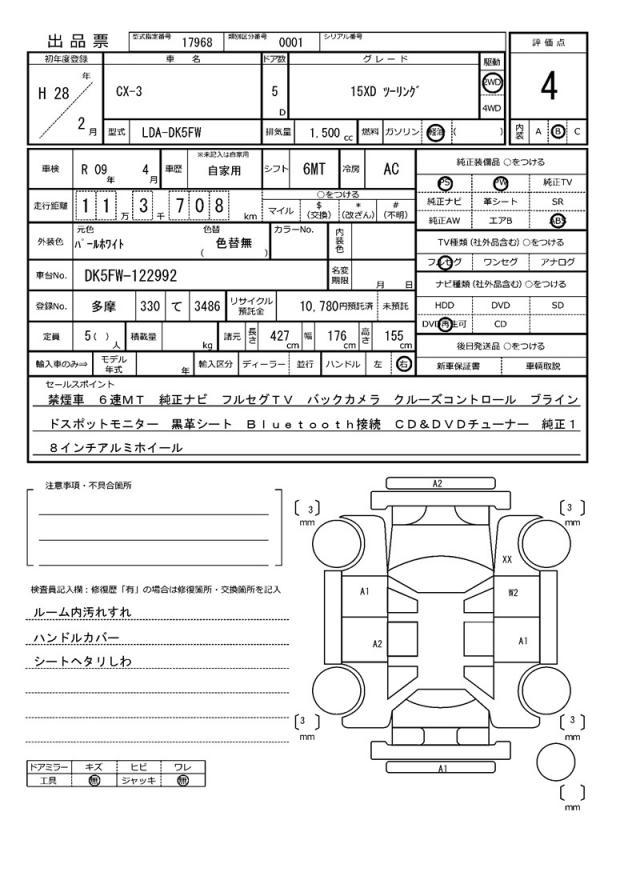 出品票 型式指定番号 17968 類別区分番号 0001 シリアル番号
評価点
4
内装 A B C
初年度登録 車名 ドア数 グレード 駆動
H 28 年 2 月 CX-3 5 D 15XD ツーリング 2WD 4WD
型式 LDA-DK5FW 排気量 1.500 cc 燃料 ガソリン 軽油 ( )
車検 R 09 年 4 月 車歴 ※未記入は自家用 自家用 シフト 6MT 冷房 AC
走行距離 1 1 万 3 千 7 0 8 km ○をつける
マイル $(交換) *(改ざん) #(不明)
外装色 元色 パールホワイト 色替 ( 色替無 ) カラーNo. 内装色
車台No. DK5FW-122992 名変期限 月 日
登録No. 多摩 330 て 3486 リサイクル預託金 10,780円預託済 未預託
定員 5( ) 人 積載量 kg 諸元 長さ 427 cm 幅 176 cm 高さ 155 cm
輸入車のみ⇒ モデル年式 年 輸入区分 ディーラー 並行 ハンドル 左 右
純正装備品 ○をつける
PS PW 純正TV
純正ナビ 革シート SR
純正AW エアB ABS
TV種類 (社外品含む) ○をつける
フルセグ ワンセグ アナログ
ナビ種類 (社外品含む) ○をつける
HDD DVD SD
DVD再生可 CD
後日発送品 ○をつける
新車保証書 車輌取説
セールスポイント
禁煙車 6速MT 純正ナビ フルセグTV バックカメラ クルーズコントロール ブライン
ドスポットモニター 黒革シート Bluetooth接続 CD&DVDチューナー 純正1
8インチアルミホイール
注意事項・不具合箇所
検査員記入欄:修復歴「有」の場合は修復箇所・交換箇所を記入
ルーム内汚れすれ
ハンドルカバー
シートヘタリしわ
ドアミラー キズ ヒビ ワレ
工具 無 ジャッキ 無
A2
3 mm
3 mm
XX
A1
W2
A2
A1
3 mm
3 mm
A1
mm